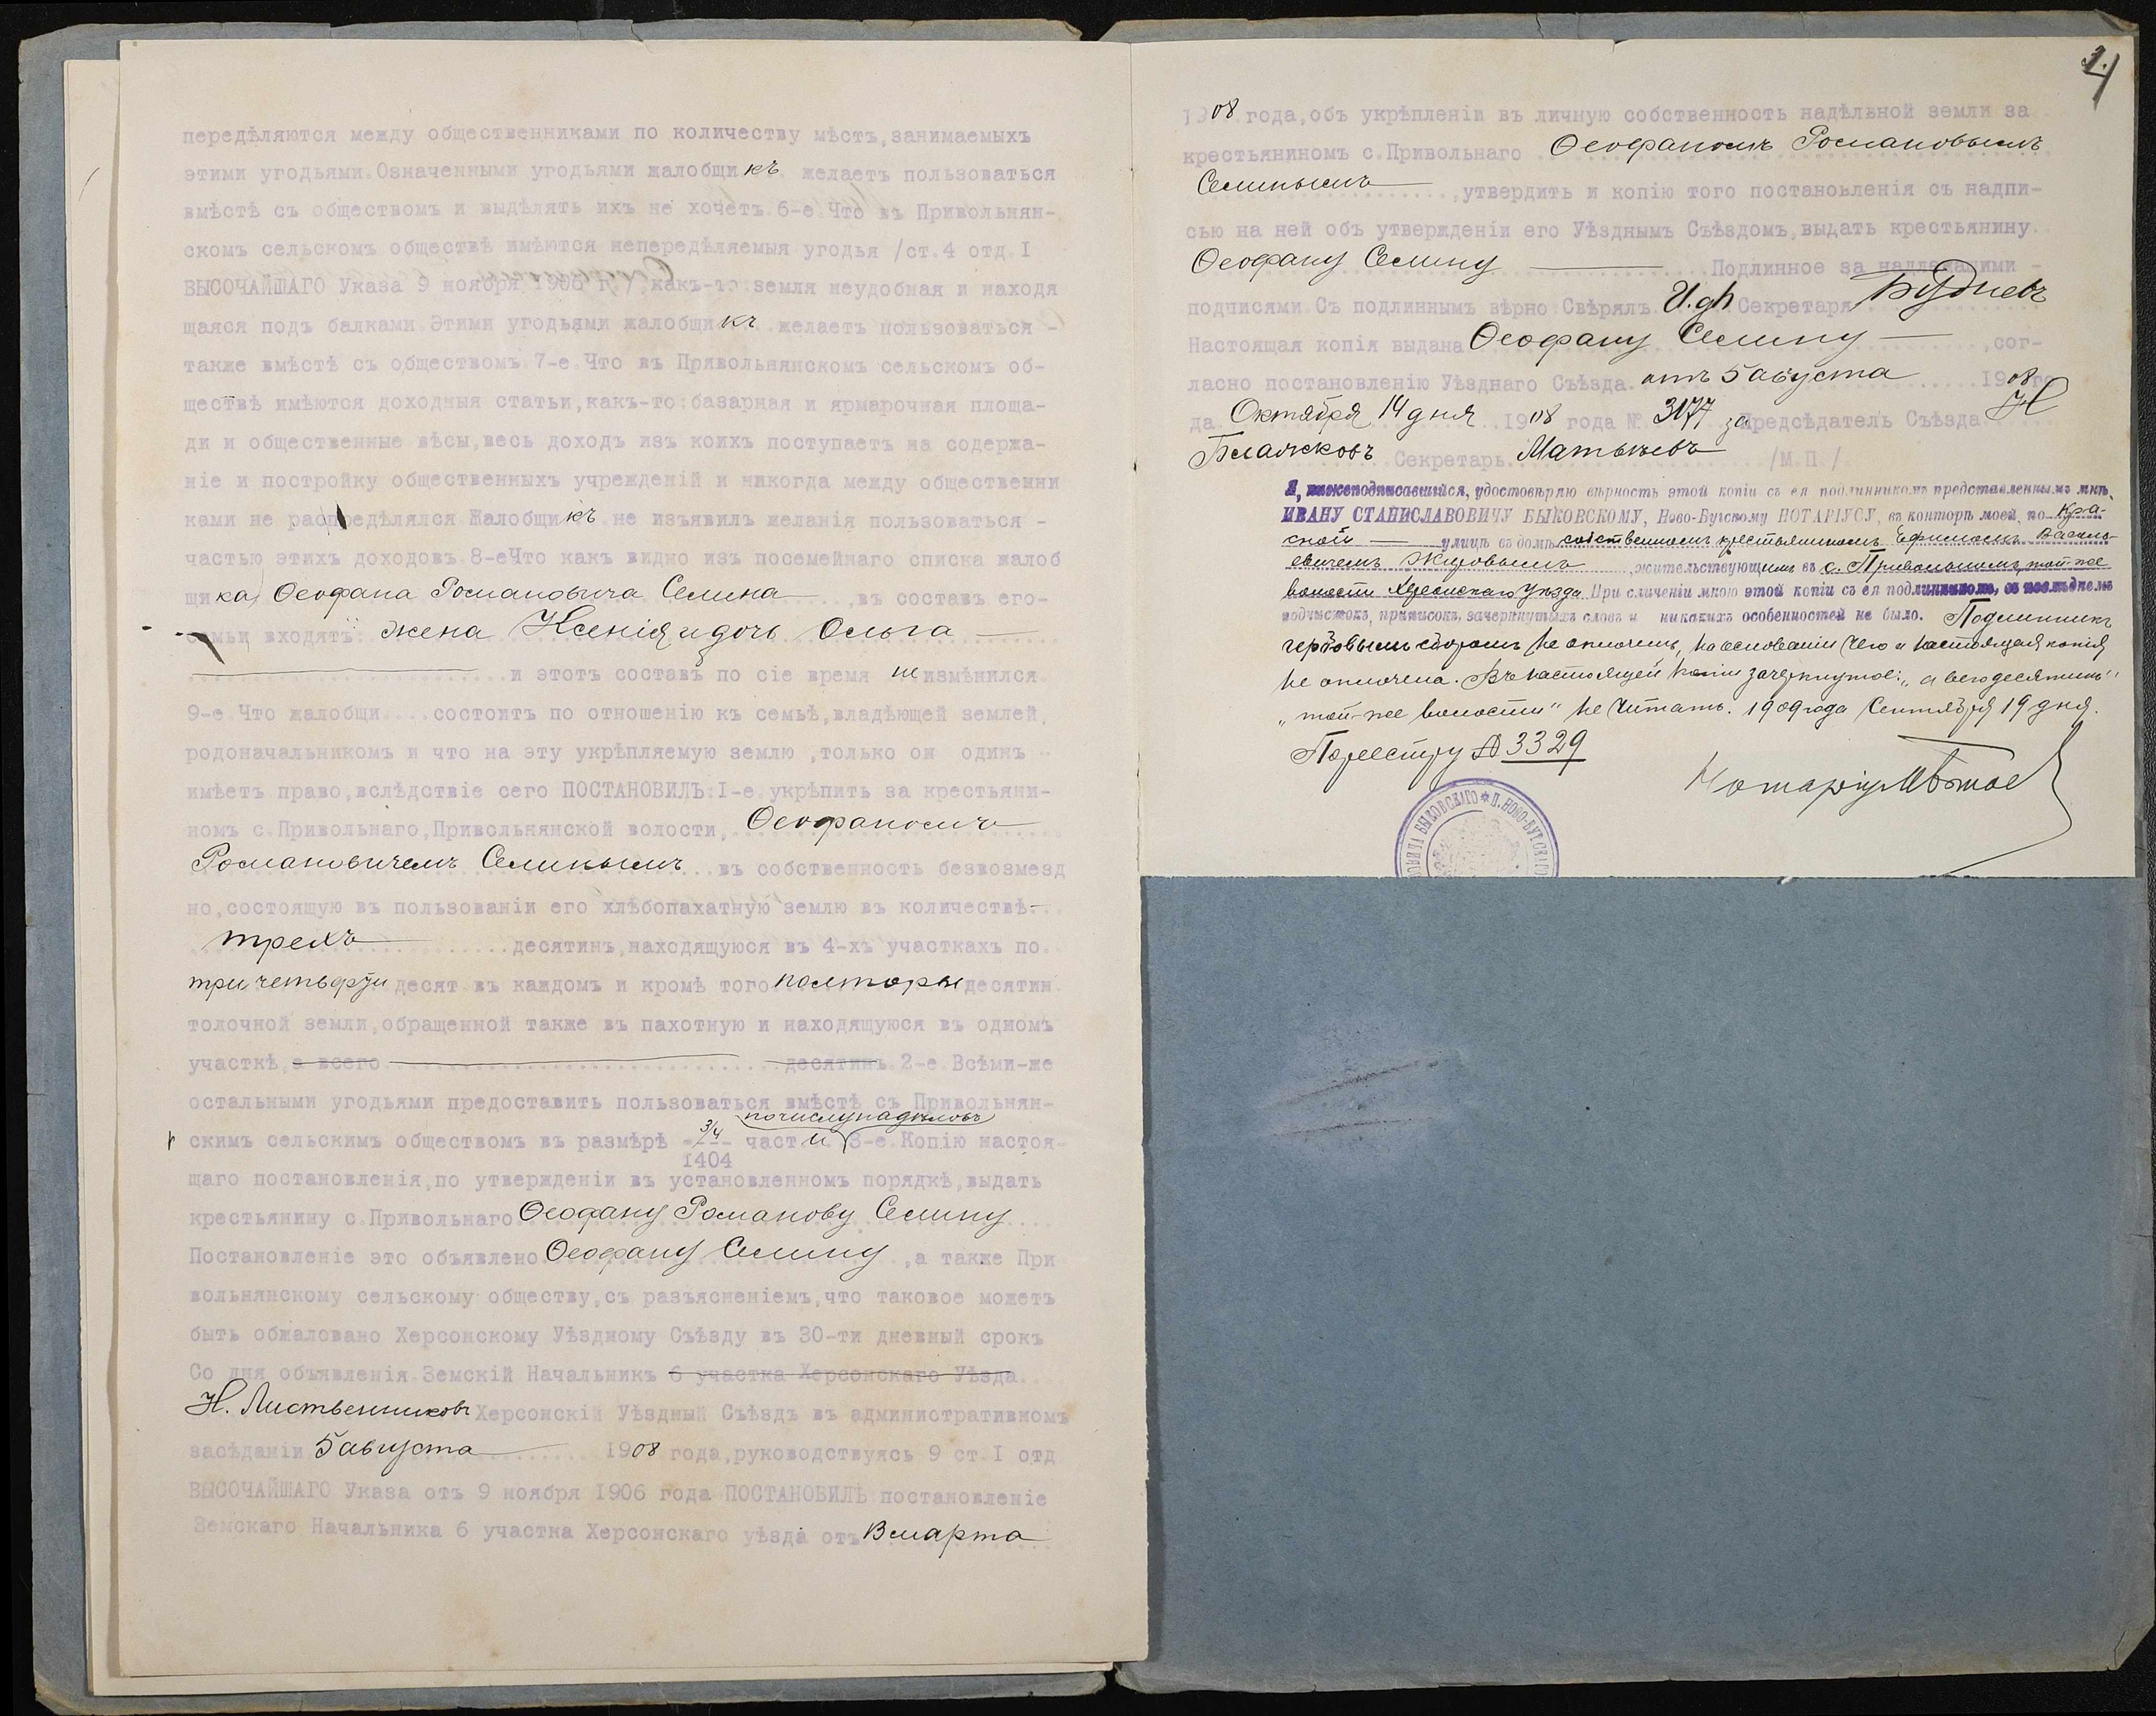 передѣляются между общественниками по количеству мѣстъ,занимаемыхъ
этими угодьями.Означенными угодьями жалобщикъ желаетъ пользоваться
вмѣстѣ съ обществомъ и выдѣлять ихъ не хочетъ.6-е.Что въ Привольнян-
скомъ сельскомъ обществѣ имѣются непередѣляемыя угодья /ст.4 отд.I
ВЫСОЧАЙШАГО Указа 9 ноября 1906 г/,какъ-то:земля неудобная и находя
щаяся подъ балками.Этими угодьями жалобщикъ желаетъ пользоваться -
также вмѣстѣ съ обществомъ.7-е.Что въ Привольнянскомъ сельскомъ об-
ществѣ имѣются доходныя статьи,какъ-то:базарная и ярмарочная площа-
ди и общественные вѣсы,весь доходъ изъ коихъ поступаетъ на содержа-
ніе и постройку общественныхъ учрежденій и никогда между общественни
ками не распредѣлялся.Жалобщикъ не изъявилъ желанія пользоваться -
частью этихъ доходовъ.8-еЧто какъ видно изъ посемейнаго списка жалоб
щика) Ѳеофана Романовича Селина ,въ составъ его-
семьи входятъ: жена Ксенія и дочь Ольга
и этотъ составъ по сіе время не измѣнился.
9-е.Что жалобщи....состоитъ по отношенію къ семьѣ,владѣющей землей,
родоначальникомъ и что на эту укрѣпляемую землю ,только он одинъ -
имѣетъ право,вслѣдствіе сего ПОСТАНОВИЛЪ:I-е.укрѣпить за крестьяни-
номъ с.Привольнаго,Привольнянской волости, Ѳеофаномъ
Романовичемъ Селинымъ въ собственность безвозмезд
но,состоящую въ пользованіи его хлѣбопахатную землю въ количествѣ-
трехъ десятинъ,находящуюся въ 4-хъ участкахъ по
три четверти десят.въ каждомъ и кромѣ того полторы десятин.
толочной земли,обращенной также въ пахотную и находящуюся въ одномъ
участкѣ,а всего десятинъ.2-е.Всѣми-же
остальными угодьями предоставить пользоваться вмѣстѣ съ Привольнян-
по числу надѣловъ
скимъ сельскимъ обществомъ въ размѣрѣ 3/4 части 3-е.Копію настоя-
1404
щаго постановленія,по утвержденіи въ установленномъ порядкѣ,выдать
крестьянину с.Привольнаго Ѳеофану Романову Селину
Постановленіе это объявлено Ѳеофану Селину ,а также При
вольнянскому сельскому обществу,съ разъясненіемъ,что таковое можетъ
быть обжаловано Херсонскому Уѣздному Съѣзду въ 30-ти дневный срокъ
Со дня объявленія.Земскій Начальникъ 6 участка Херсонскаго Уѣзда
Н. Лиственниковъ Херсонскій Уѣздный Съѣздъ въ административномъ
засѣданіи 5 августа 1908 года,руководствуясь 9 ст.I отд
ВЫСОЧАЙШАГО Указа отъ 9 ноября 1906 года ПОСТАНОВИЛЪ:постановленіе
Земскаго Начальника 6 участка Херсонскаго уѣзда отъ 8 марта
4
1908 года,объ укрѣпленіи въ личную собственность надѣльной земли за
крестьяниномъ с.Привольнаго Ѳеофаномъ Романовымъ
Селинымъ ,утвердить и копію того постановленія съ надпи-
сью на ней объ утвержденіи его Уѣзднымъ Съѣздомъ,выдать крестьянину
Ѳеофану Селину Подлинное за надлежащими -
подписями.Съ подлиннымъ вѣрно.Свѣрялъ И.д. Секретаря
Настоящая копія выдана Ѳеофану Селину ,сог-
ласно постановленію Уѣзднаго Съѣзда отъ 5 августа 1908 го
да Октября 14 дня 1908 года № 3177 за Предсѣдатель Съѣзда Н
Секретарь Матвѣевъ /М.П./
Я, нижеподписавшійся, удостовѣряю вѣрность этой копіи съ ея подлинникомъ представленнымъ мнѣ,
ИВАНУ СТАНИСЛАВОВИЧУ БЫКОВСКОМУ, Ново-Бугскому НОТАРІУСУ, въ конторѣ моей, по Кра-
сной улицѣ въ домѣ собственномъ крестьяниномъ Ефимомъ Василь-
евичемъ Жировымъ, жительствующимъ въ с. Привольномъ, той-же
волости Херсонскаго уѣзда При сличеніи мною этой копіи съ ея подлинникомъ, въ послѣднемъ
подчистокъ, приписокъ, зачеркнутыхъ словъ и никакихъ особенностей не было. Подлинникъ
гербовымъ сборомъ не оплоченъ, на основаніи чего и настоящая копія
не оплочена. Въ настоящей копіи зачеркнутое: „а всего десятинъ",
„той-же волости" не читать. 1909 года Сентября 19 дня.
По реестру № 3329
Нотаріусъ
БЫКОВСКАГО * П. НОВО-БУГСКАГО